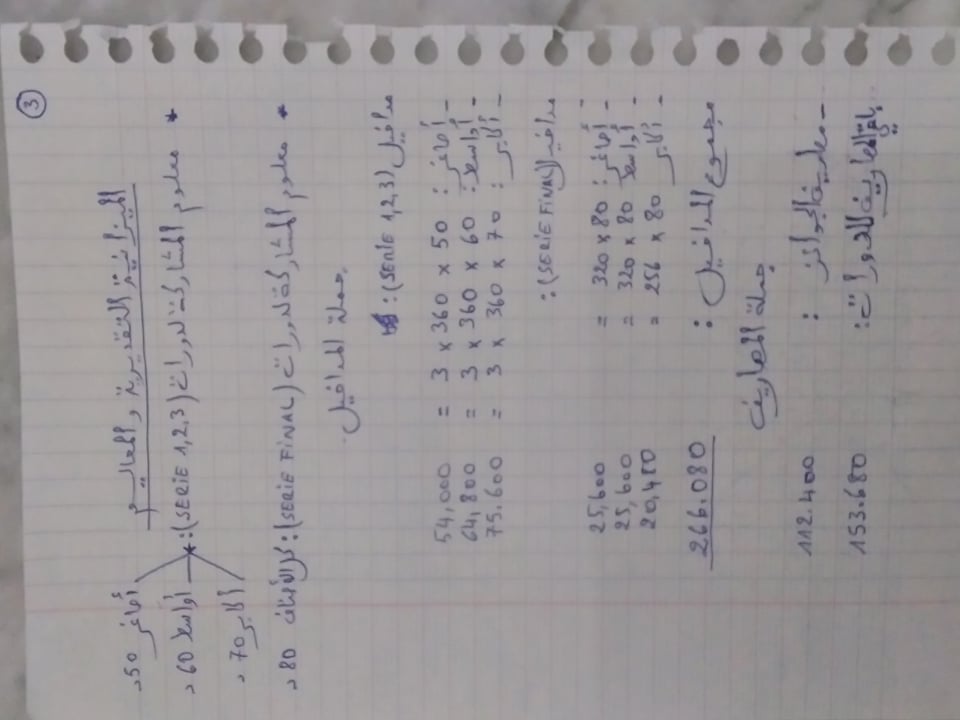 ③
الميزانية التقديرية والمعاليم
* معلوم المشاركة لدورات (SERIE 1,2,3) :*
أصاغر 50د
أواسط 60د
أكابر 70د
* معلوم المشاركة لدورات (SERIE FINAL): كل الأصناف 80د
جملة المداخيل
مداخيل (SERIE 1,2,3):
- أصاغر : 3 x 360 x 50 = 54,000
- أواسط : 3 x 360 x 60 = 64,800
- أكابر : 3 x 360 x 70 = 75.600
مداخيل (SERIE FINAL):
- أصاغر : 320 x 80 = 25,600
- أواسط : 320 x 80 = 25,600
- أكابر : 256 x 80 = 20,480
مجموع المداخيل : 266.080
جملة المصاريف
- : 112.400
مصاريف الدورات : 153.680